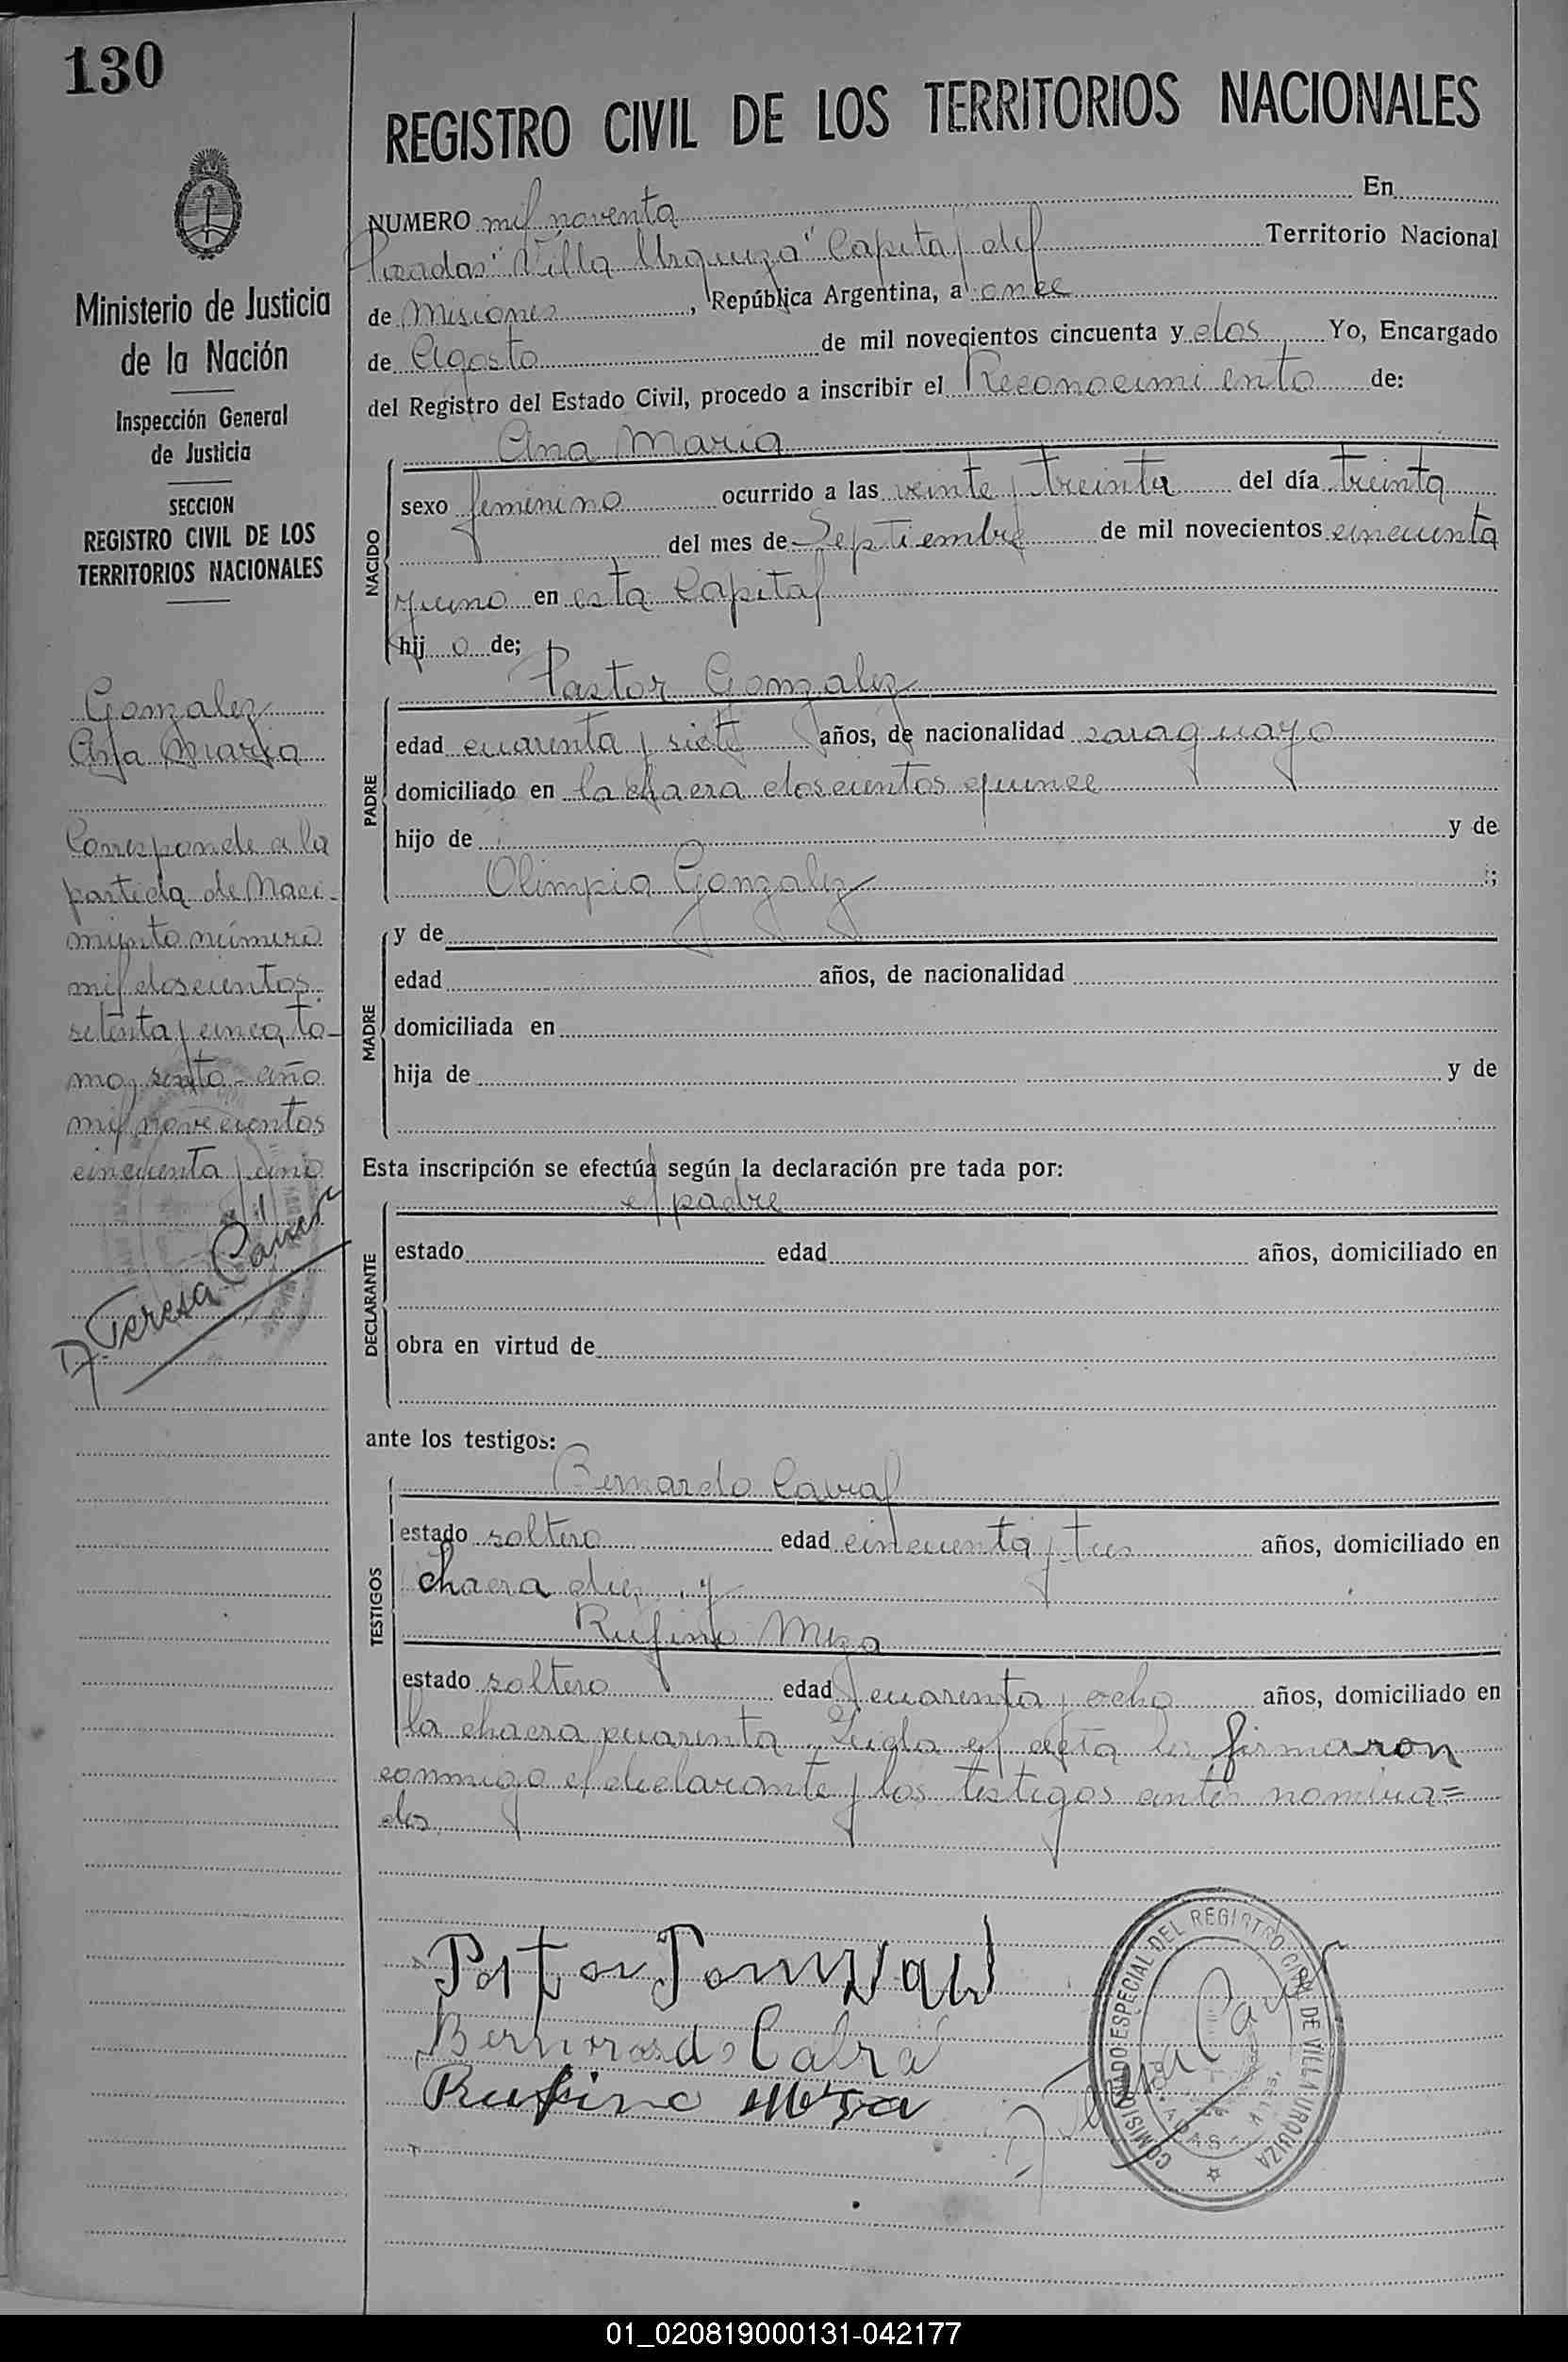 130
REGISTRO CIVIL DE LOS TERRITORIOS NACIONALES
NUMERO mil noventa En
Posadas "Villa Urquiza" Capital del Territorio Nacional
de Misiones, República Argentina, a once
de Agosto de mil novecientos cincuenta y dos Yo, Encargado
del Registro del Estado Civil, procedo a inscribir el Reconocimiento de:
Ana Maria
NACIDO
sexo femenino ocurrido a las veinte y treinta del día treinta
del mes de Septiembre de mil novecientos cincuenta
y uno en esta Capital
hij o de;
PADRE
Pastor Gonzalez
edad cuarenta y siete años, de nacionalidad paraguayo
domiciliado en la chacra doscientos quince
hijo de y de
Olimpia Gonzalez ;
MADRE
y de
edad años, de nacionalidad
domiciliada en
hija de y de
Esta inscripción se efectúa según la declaración pre tada por:
DECLARANTE
el padre
estado edad años, domiciliado en
obra en virtud de
ante los testigos:
TESTIGOS
Bernardo Cabral
estado soltero edad cincuenta y tres años, domiciliado en
chacra diez y
Rufino Meza
estado soltero edad cuarenta y ocho años, domiciliado en
la chacra cuarenta Leida el acta la firmaron
conmigo el declarante y los testigos antes nomina=
dos
Bernardo Cabra
Rufino Meza
COMISIONADO ESPECIAL DEL REGISTRO CIVIL DE VILLA URQUIZA
POSADAS
Ministerio de Justicia
de la Nación
Inspección General
de Justicia
SECCION
REGISTRO CIVIL DE LOS
TERRITORIOS NACIONALES
Gonzalez
Ana Maria
Corresponde a la
partida de Naci-
miento número
mil doscientos
setenta y cinco, to-
mo, sexto - año
mil novecientos
cincuenta y uno
Teresa
01_020819000131-042177